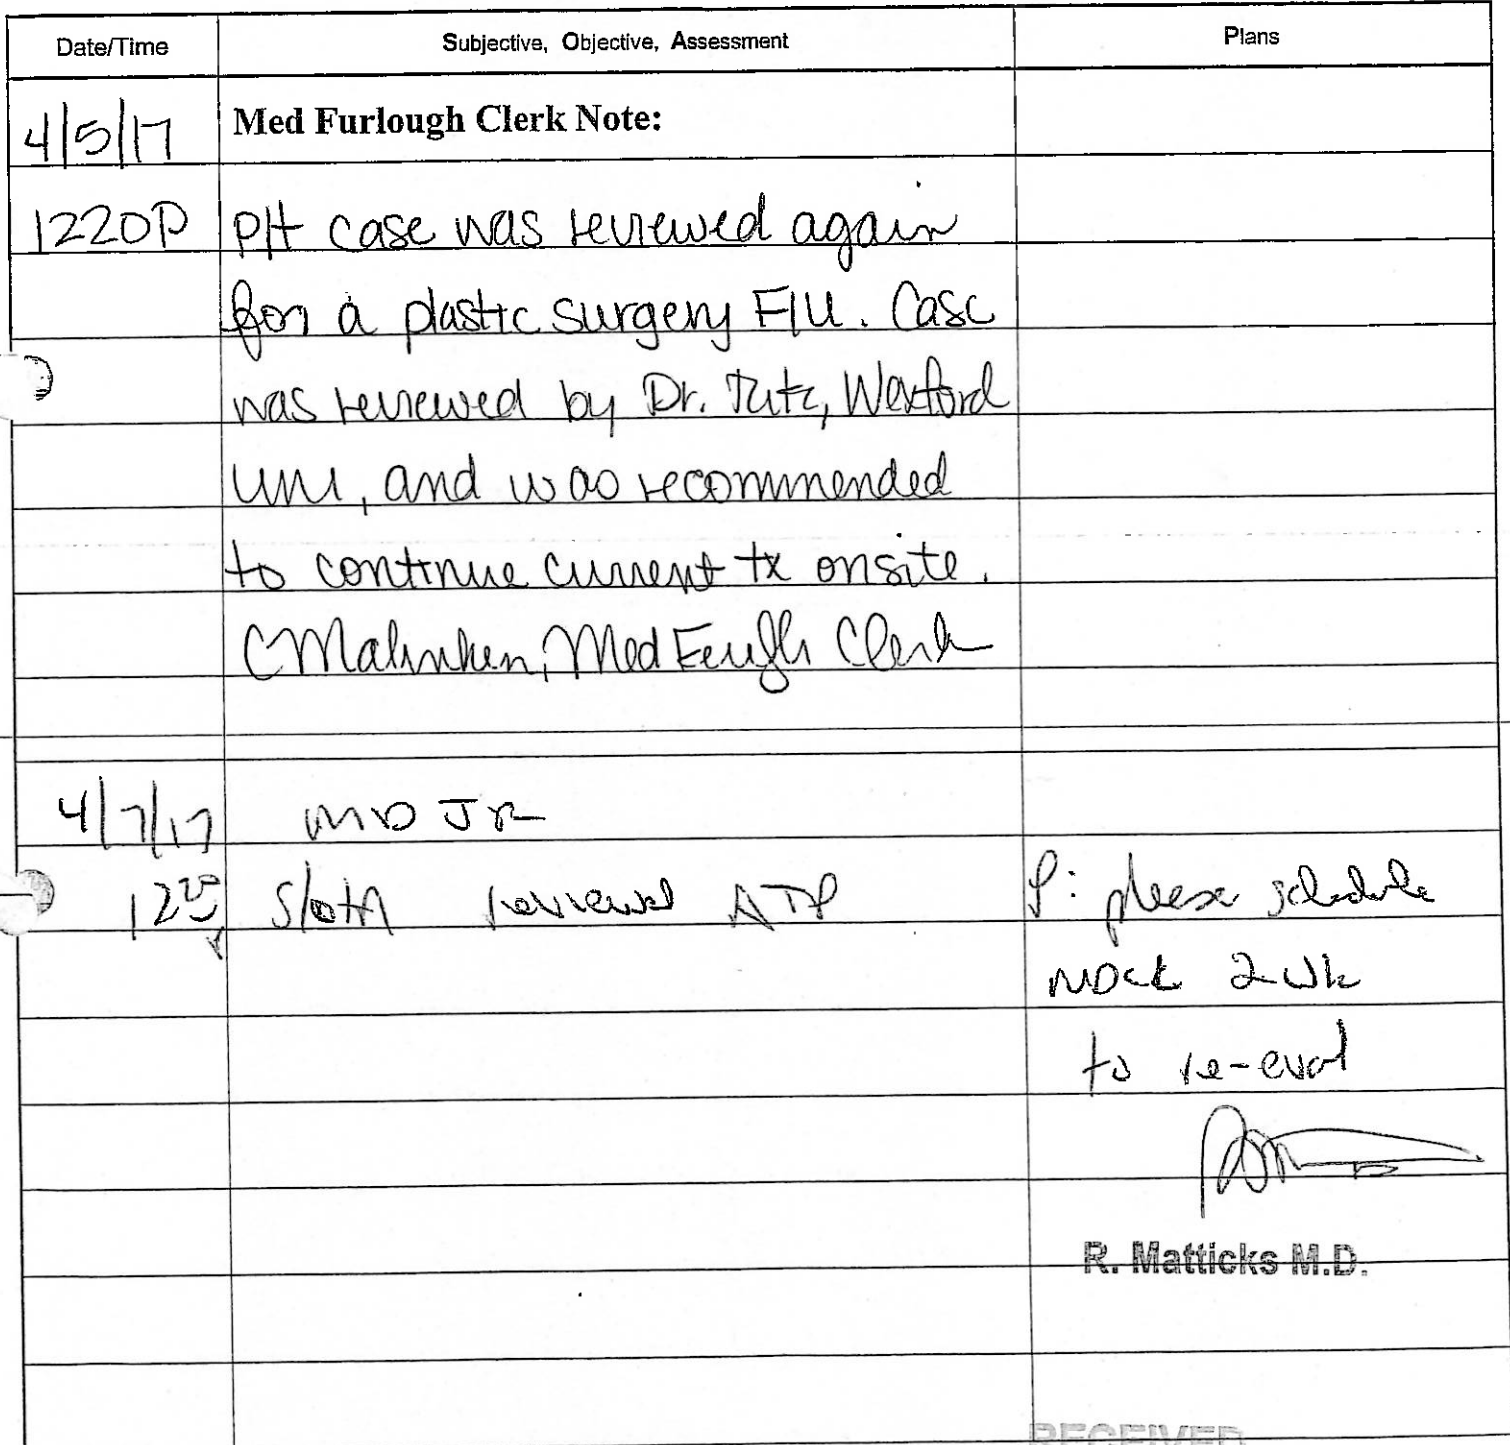 Date/Time Subjective, Objective, Assessment Plans
4/5/17 Med Furlough Clerk Note:
1220P Pt case was reviewed again
for a plastic surgery F/U. Case
was reviewed by Dr. Ritz, Wexford
UM, and was recommended
to continue current tx onsite.
CMahnken, Med Furlgh Clerk
4/7/17 MD
reviewed ATP P: please schedule
2 wk
to re-eval
R. Matticks M.D.
RECEIVED